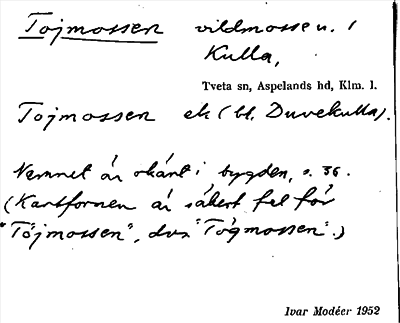 Tojmossen vildmosse u. /
Kulla,
Tveta sn, Aspelands hd, Klm. l.
Tojmossen ek (bl. Duvekulla).
Namnet är okänt i bygden, s. 36.
(Kartformen är säkert fel för
"Töjmossen", dvs "Tögmossen".)
Ivar Modéer 1952